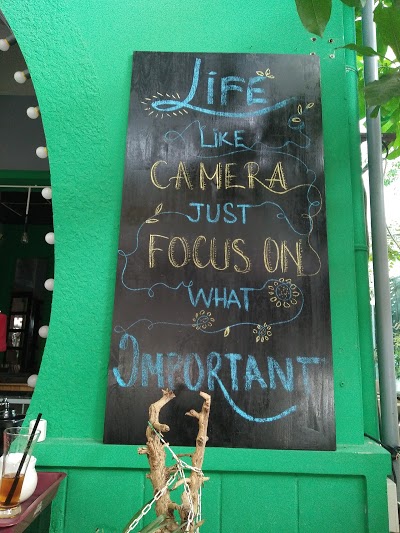 LIFE
LIKE
CAMERA
JUST
FOCUS ON
WHAT
IMPORTANT